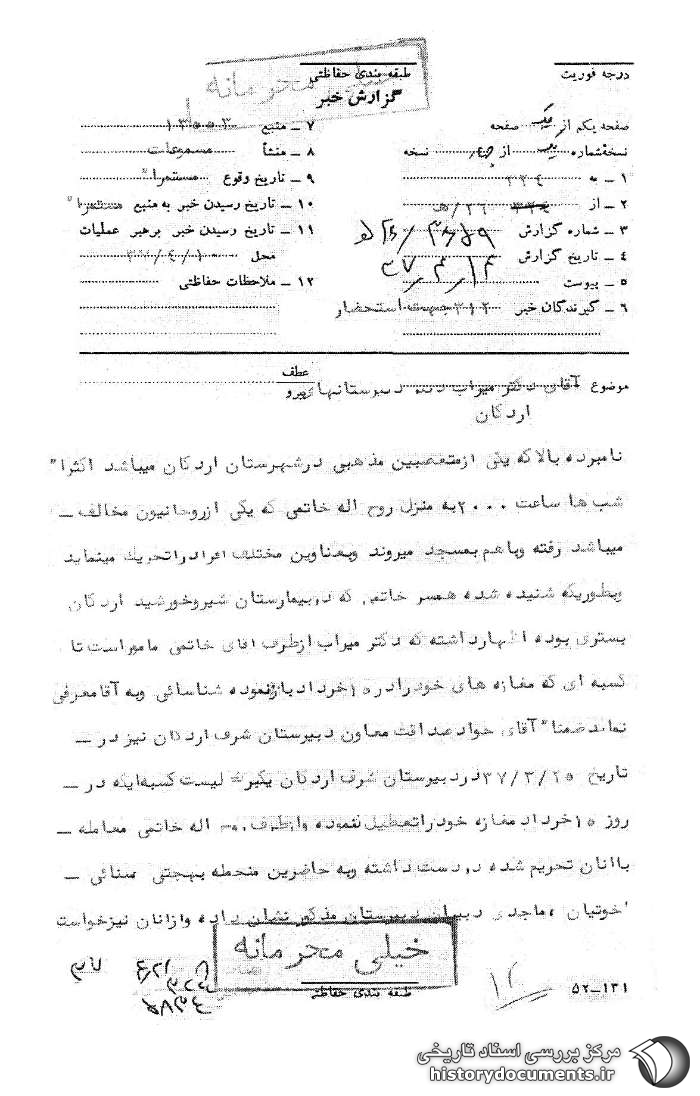 خیلی محرمانه
درجه فوریت
طبقه بندی حفاظتی
گزارش خبر
صفحه یکم از یک صفحه
نسخه شماره یک از چهار نسخه
۱ ـ به ۳۳۴
۲ ـ از ۲۶/ هـ
۳ ـ شماره گزارش
۴ ـ تاریخ گزارش ۳۷٫۴٫۱۴
۵ ـ پیوست
۶ ـ گیرندگان خبر ۳۱۲ جهت استحضار
۷ ـ منبع ۱۳۵۵۳
۸ ـ منشأ مسموعات
۹ ـ تاریخ وقوع مستمرا"
۱۰ ـ تاریخ رسیدن خبر به منبع مستمرا"
۱۱ ـ تاریخ رسیدن خبر برهبر عملیات
محل ۳۷/۴/۱۰
۱۲ ـ ملاحظات حفاظتی
عطف
پیرو
موضوع آقای دکتر میراب دبیرستانهای
اردکان
نامبرده بالا که یکی ازمتعصبین مذهبی درشهرستان اردکان میباشد اکثرا"
شب ها ساعت ۲۰۰۰ به منزل روح اله خاتمی که یکی ازروحانیون مخالف ـ
میباشد رفته وباهم بمسجد میروند وبعناوین مختلف افرادراتحریک مینماید
وبطوریکه شنیده شده همسر خاتمی که دربیمارستان شیروخورشید اردکان
بستری بوده اظهارداشته که دکتر میراب ازطرف آقای خاتمی ماموراست تا
کسبه ای که مغازه های خودرادر۱۵خرداد بازنموده شناسائی وبه آقامعرفی
نماید ضمنا" آقای جواد صداقت معاون دبیرستان شرف اردکان نیز در ـ
تاریخ ۳۷/۳/۲۵ دردبیرستان شرف اردکان لیست کسبه‌ایکه در ـ
روز ۱۵خرداد مغازه خودراتعطیل ننموده وازطرف روح اله خاتمی معامله ـ
باآنان تحریم شده دردست داشته وبه حاضرین بهجتی سنائی ـ
اخوتیان ، ماجدی دبیران دبیرستان مذکور نشان داده وازآنان نیزخواست
خیلی محرمانه
طبقه بندی حفاظتی
۱۲
۵۲ـ۱۳۱
مرکز بررسی اسناد تاریخی
historydocuments.ir